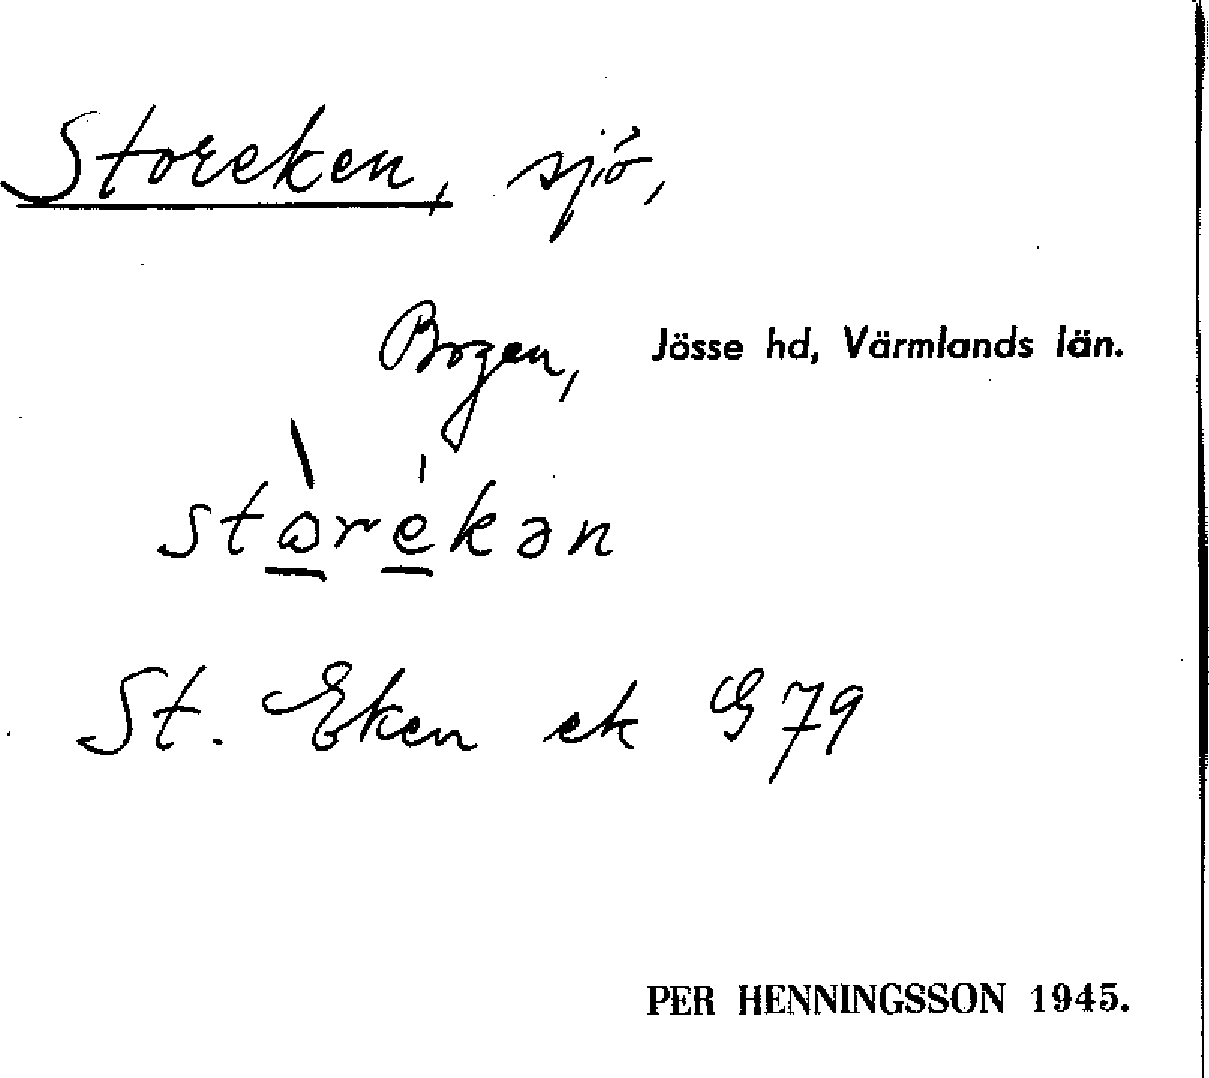 Storeken, sjö,
Bogen, Jösse hd, Värmlands län.
stωrekən
St. Eken ek G 79
PER HENNINGSSON 1945.